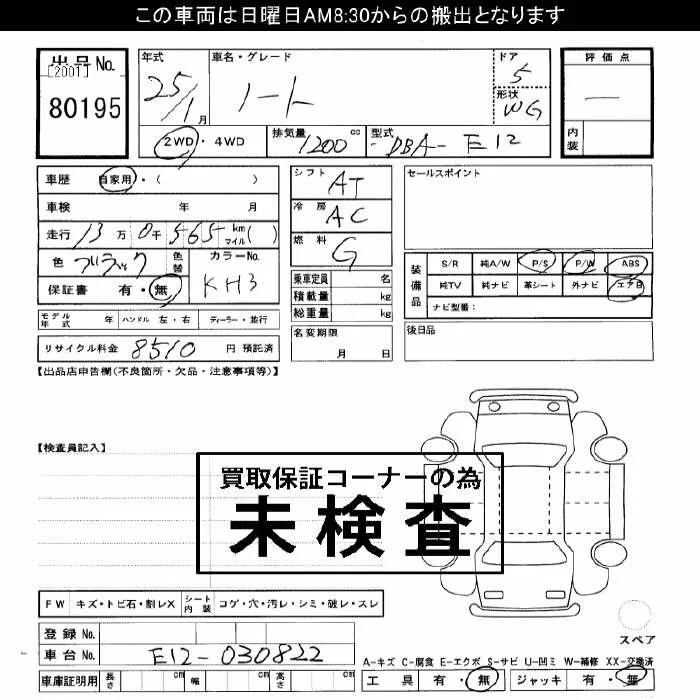 この車両は日曜日AM8:30からの搬出となります
出品No.
[2001]
80195
年式 25/1 月
車名・グレード ノート
ドア 5
形状 WG
2WD・4WD 排気量 1200 cc 型式 DBA- E12
評価点 —
内装
車歴 自家用・( )
車検 年 月
走行 13万 0千 565 km マイル ( )
色 ブラック 色替 カラーNo. KH3
保証書 有・無
シフト AT
冷房 AC
燃料 G
乗車定員 名
積載量 kg
総重量 kg
セールスポイント
装備品 S/R 純A/W P/S P/W ABS
純TV 純ナビ 革シート 外ナビ エアB
ナビ型番:
モデル年式 年 ハンドル 左・右 ディーラー・並行
名変期限 月 日
後日品
リサイクル料金 8510 円 預託済
【出品店申告欄(不良箇所・欠品・注意事項等)】
【検査員記入】
買取保証コーナーの為
未検査
FW キズ・トビ石・割レX シート内装 コゲ・穴・汚レ・シミ・破レ・スレ
登録No.
車台No. E12-030822
スペア
A-キズ C-腐食 E-エクボ S-サビ U-凹ミ W-補修 XX-交換済
車庫証明用 長さ cm 幅 cm 高さ cm
工具 有・無 ジャッキ 有・無